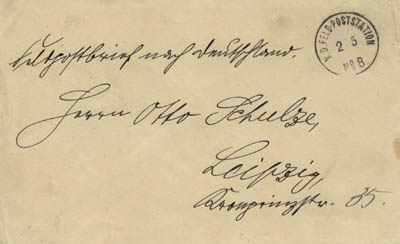 K.D. FELD-POSTSTATION
2 5
No 8.
Feldpostbrief nach Deutschland.
Herrn Otto Schulze,
Leipzig,
Kronprinzstr. 35.